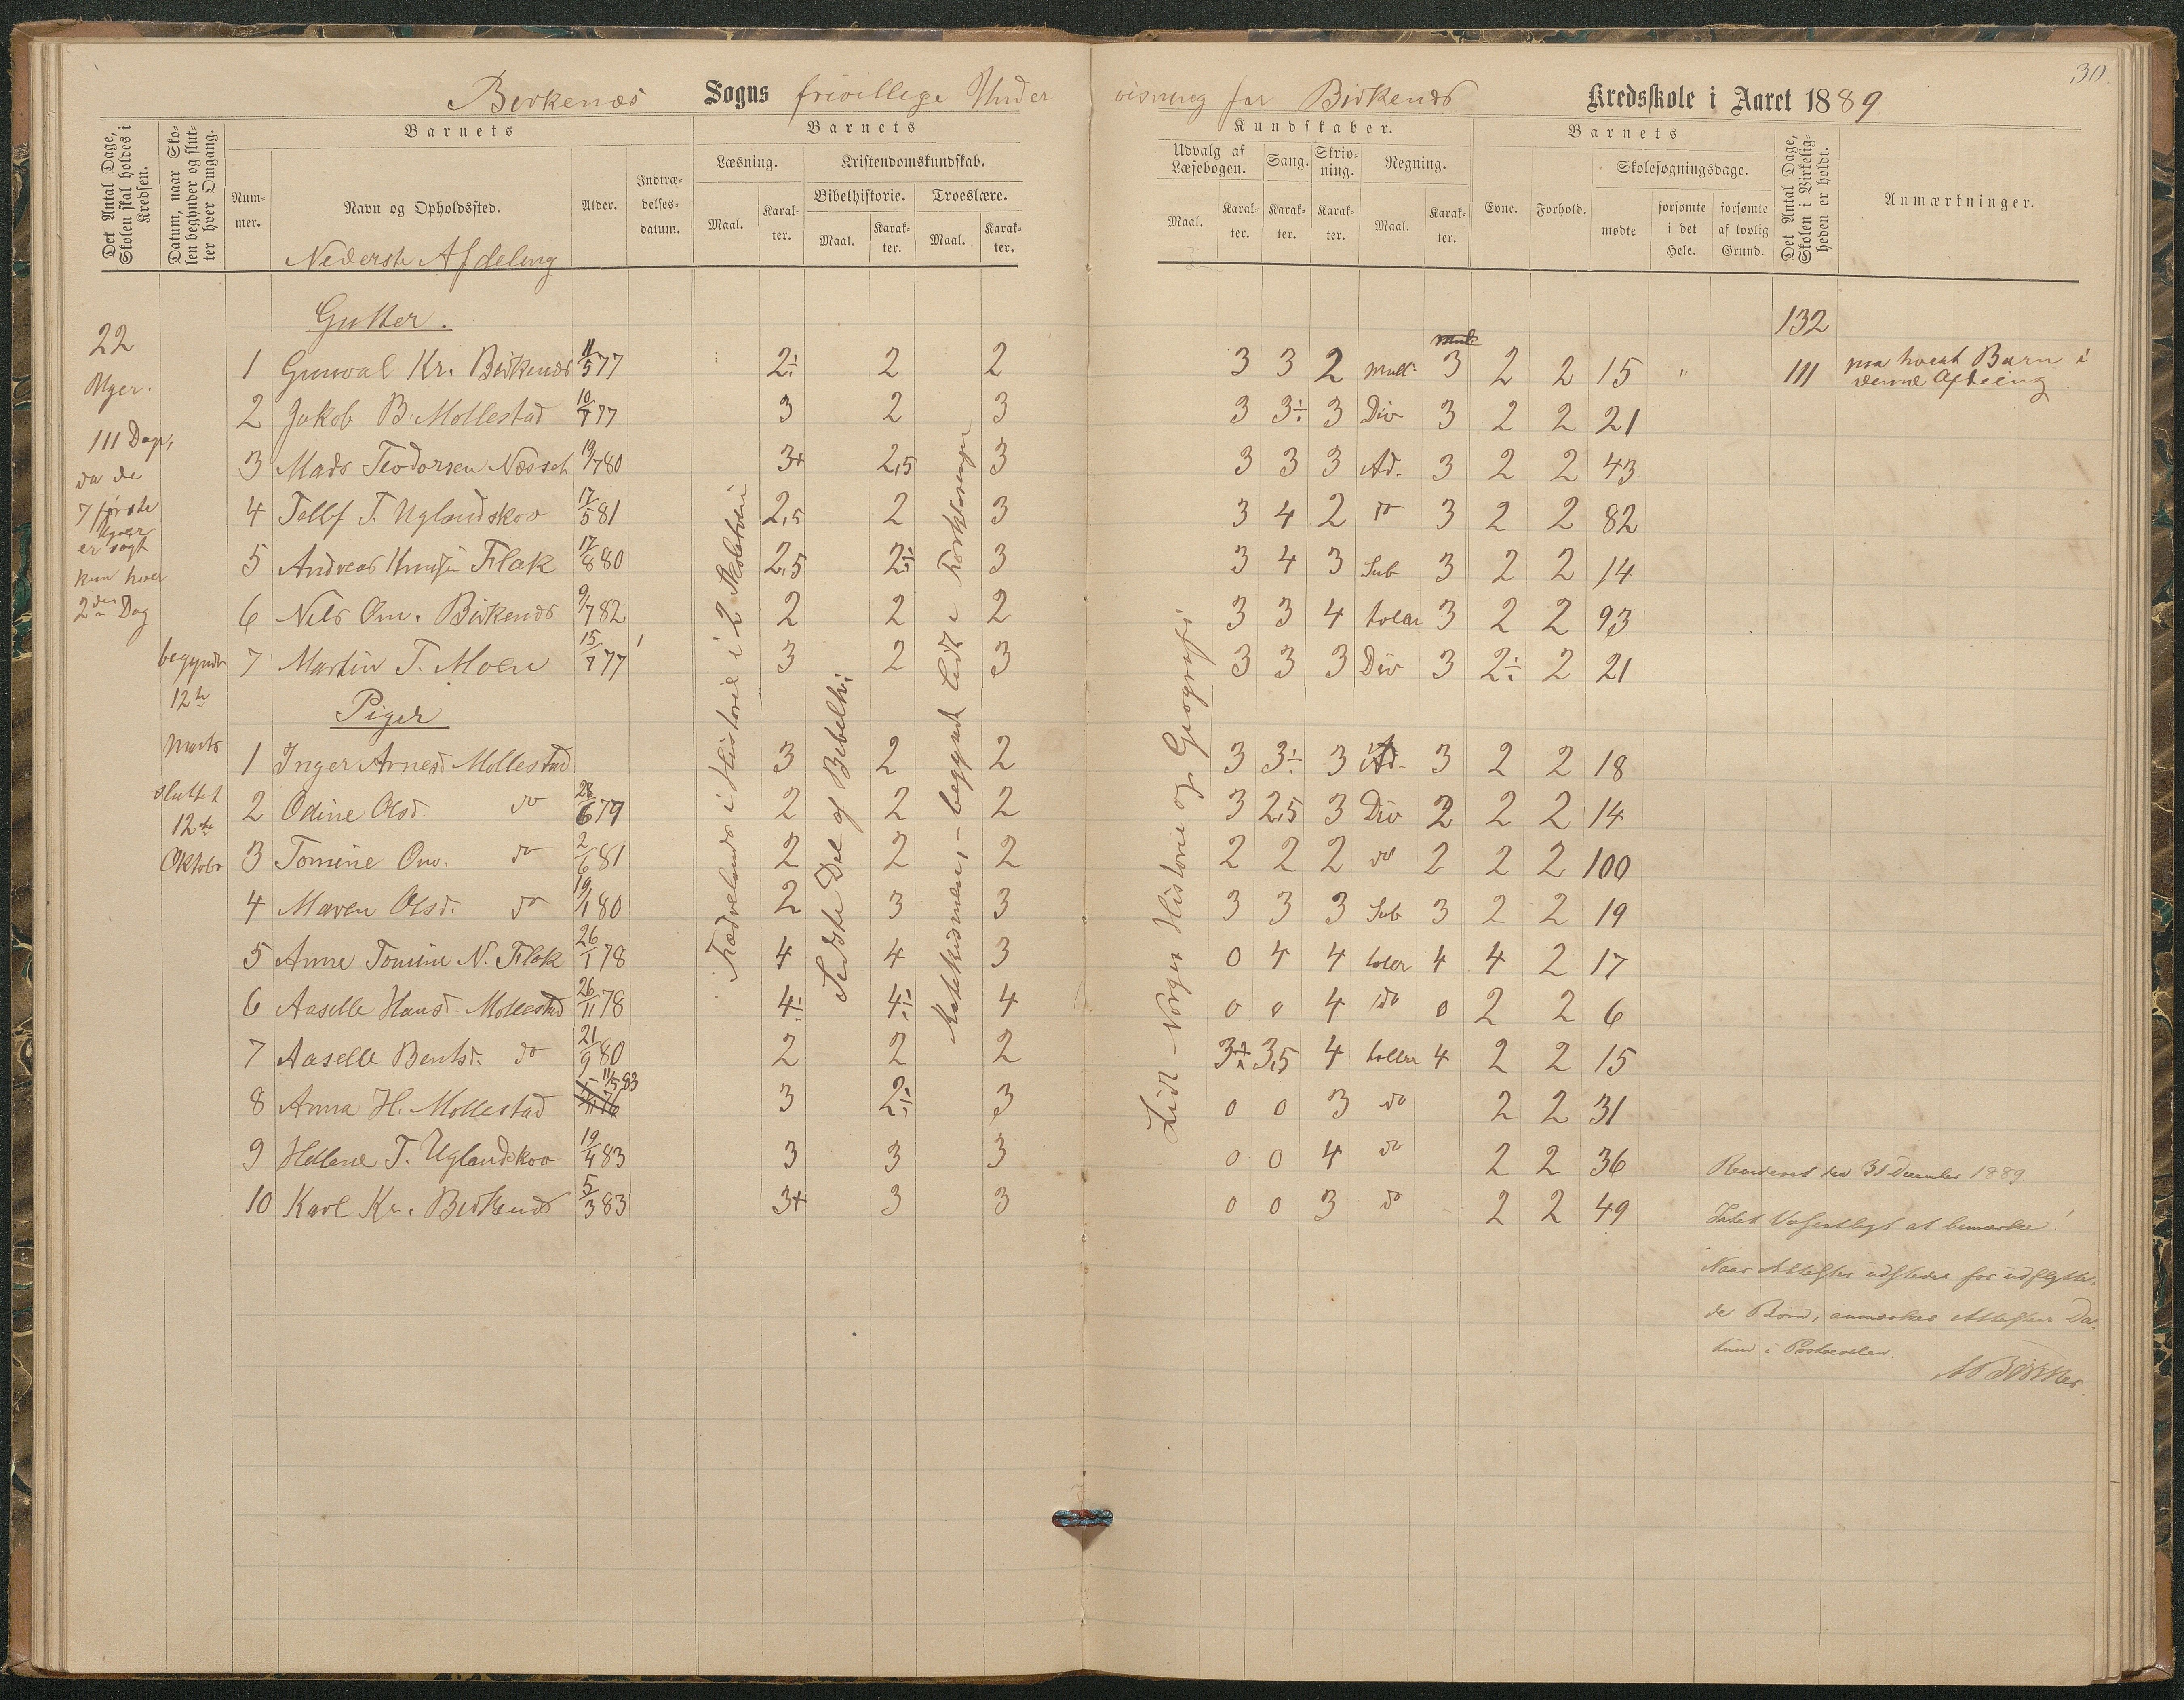 30.
Birkenæs Sogns frivillige Under visning for Birkenæs Kredsskole i Aaret 1889
Det Antal Dage, Skolen skal holdes i Kredsen.
Datum, naar Skolen begynder og slutter hver Omgang.
Barnets
Nummer.
Navn og Opholdssted.
Alder.
Indtrædelsesdatum.
Barnets
Læsning.
Maal.
Karakter.
Kristendomskundskab.
Bibelhistorie.
Maal.
Karakter.
Troeslære.
Maal.
Karakter.
Kundskaber.
Udvalg af Læsebogen.
Maal.
Karakter.
Sang.
Karakter.
Skrivning.
Karakter.
Regning.
Maal.
Karakter.
Barnets
Evne.
Forhold.
Skolesøgningsdage.
mødte
forsømte i det Hele.
forsømte af lovlig Grund.
Det Antal Dage, Skolen i Virkeligheden er holdt.
Anmærkninger.
Nederste Afdeling
Gutter.
132
22
Uger.
111 Dage,
da de
7 første
Uger
er søgt
kun hver
2den Dag
begyndt
12te
Marts
sluttet
12te
Oktober
1 Gunval Kr. Birkenæs 11/5 77 2÷ 2 2 3 3 2 Mult. 3 2 2 15 " 111 paa hvert Barn i denne Afdeling
2 Jakob B. Mollestad 10/7 77 3 2 3 3 3÷ 3 Div 3 2 2 21
3 Mads Teodorsen Næsset 19/7 80 3+ 2,5 3 3 3 3 Ad. 3 2 2 43
4 Tellf T. Uglandskov 17/5 81 2,5 2 3 3 4 2 do 3 2 2 82
5 Andreas Knudsen Flak 17/8 80 2,5 2÷ 3 3 4 3 Sub 3 2 2 14
6 Nils Om. Birkenæs 9/7 82 2 2 2 3 3 4 taller 3 2 2 93
7 Martin T. Moen 15/7 77 3 2 3 3 3 3 Div 3 2÷ 2 21
Piger
1 Inger Arnesd Mollestad 3 2 2 3 3÷ 3 Ad. 3 2 2 18
2 Odine Olsd. do 28/6 79 2 2 2 3 2,5 3 Div 2 2 2 14
3 Tomine Om. do 2/6 81 2 2 2 2 2 2 do 2 2 2 100
4 Maren Olsd. do 19/1 80 2 3 3 3 3 3 Sub 3 2 2 19
5 Anne Tomine N. Flak 26/1 78 4 4 3 0 4 4 taller 4 4 2 17
6 Aaselle Hansd. Mollestad 26/11 78 4÷ 4÷ 4 0 0 4 do 0 2 2 6
7 Aaselle Bentsd. do 21/9 80 2 2 2 3÷ 3,5 4 taller 4 2 2 15
8 Anna H. Mollestad 11/5 83 3 2÷ 3 0 0 3 do 2 2 31
9 Hellene T. Uglandskov 19/4 83 3 3 3 0 0 4 do 2 2 36
10 Karl Kr. Birkenæs 5/3 83 3+ 3 3 0 0 3 do 2 2 49
Fædrelands i Historie i 2 Skoletrin
Sidste Del af Bibelhi.
Katekismen,- begyndt lidt i Forklaringen
Lidt Norges Historie og Geografi
Revideret den 31 December 1889.
Intet Væsentligt at bemærke!
Naar Attester udstedes for udflytte-
de Børn, anmærkes Attestens Da-
tum i Protocollen.